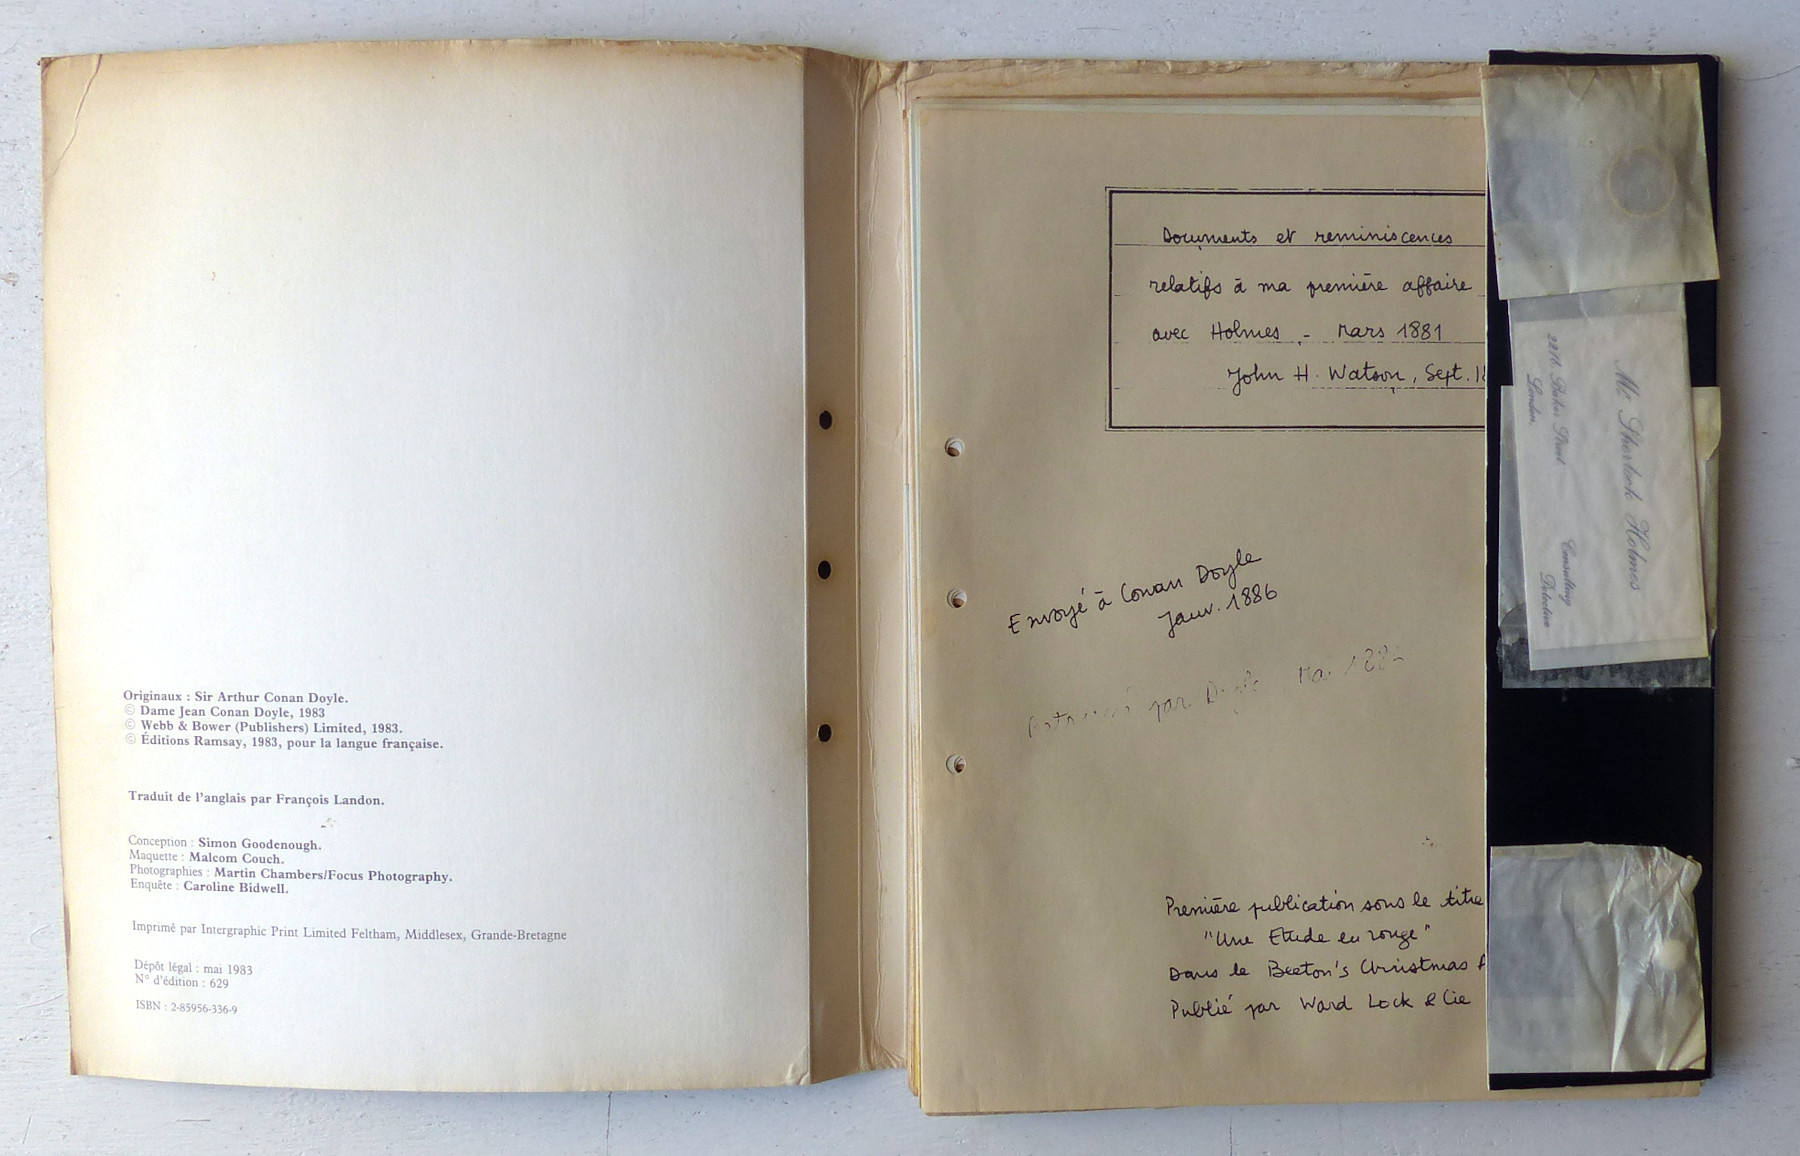 Originaux : Sir Arthur Conan Doyle.
© Dame Jean Conan Doyle, 1983
© Webb & Bower (Publishers) Limited, 1983.
© Éditions Ramsay, 1983, pour la langue française.
Traduit de l'anglais par François Landon.
Conception : Simon Goodenough.
Maquette : Malcom Couch.
Photographies : Martin Chambers/Focus Photography.
Enquête : Caroline Bidwell.
Imprimé par Intergraphic Print Limited Feltham, Middlesex, Grande-Bretagne
Dépôt légal : mai 1983
N° d'édition : 629
ISBN : 2-85956-336-9
Documents et reminiscences
relatifs à ma première affaire
avec Holmes - Mars 1881
John H. Watson, Sept. 18
Envoyé à Conan Doyle
Janv. 1886
par
Première publication sous le titre
"Une Etude en rouge"
Dans le Beeton's Christmas A
Publié par Ward Lock & Cie
Mr Sherlock Holmes
Consulting
Detective
221b Baker Street
London.